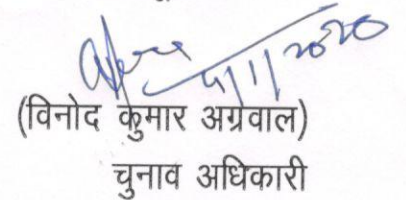 5/1/2020
(विनोद कुमार अग्रवाल)
चुनाव अधिकारी